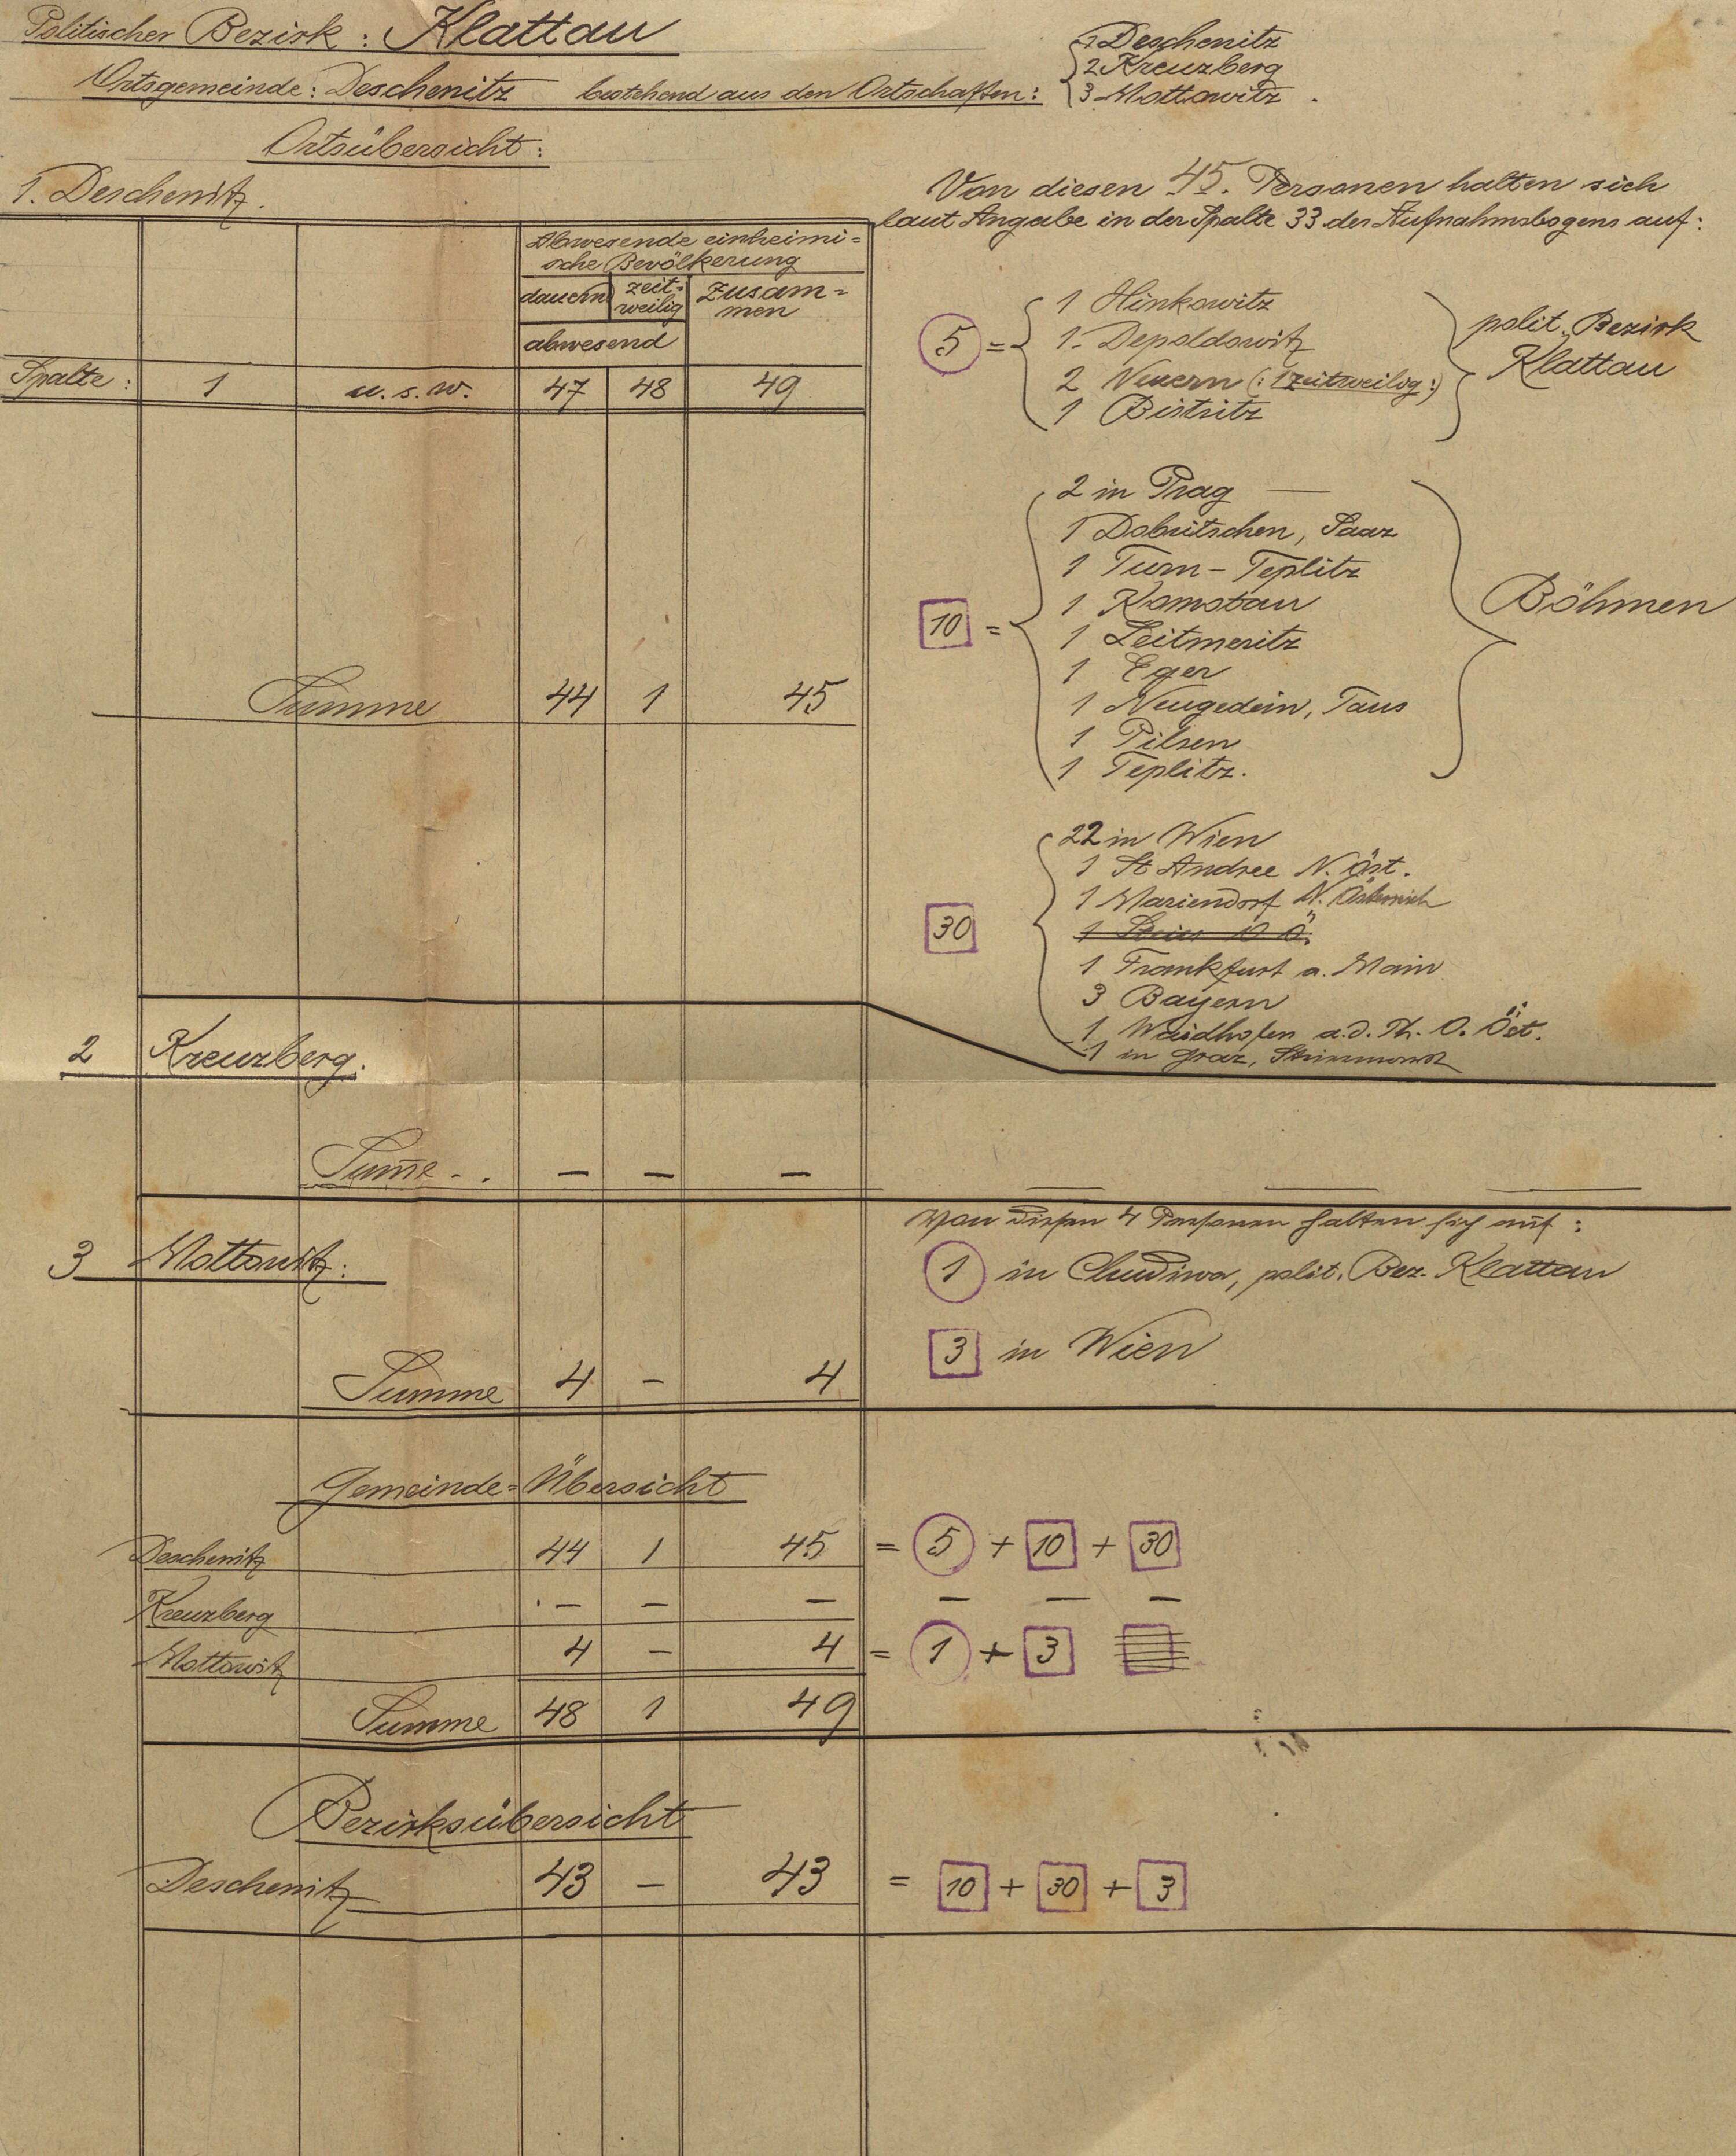 Politischer Bezirk: Klattau
Ortsgemeinde: Deschenitz bestehend aus den Ortschaften:
1 Deschenitz
2 Kreuzberg
3 Mottowitz.
Ortsübersicht:
1. Deschenitz.
Abwesende einheimi=
sche Bevölkerung
dauernd zeit= Zusam=
weilig men
abwesend
Spalte: 1 u. s. w. 47 48 49
Summe 44 1 45
Von diesen 45. Personen halten sich
laut Angabe in der Spalte 33 des Aufnahmsbogens auf:
5 =
1 Hinkowitz
1. Depoldowitz
2 Neuern (: 1 zeitweilig :)
1 Bistritz
polit. Bezirk
Klattau
10 =
2 in Prag —
1 Dobritschen, Saaz
1 Turn - Teplitz
1 Komotau
1 Leitmeritz
1 Eger
1 Neugedein, Taus
1 Pilsen
1 Teplitz.
Böhmen
30
22 in Wien
1 St Andree N. Öst.
1 Mariendorf N. Österreich
1 Frankfurt a. Main
3 Bayern
1 Waidhofen a. d. Th. O. Öst.
1 in Graz, Steiermark
2 Kreuzberg.
Sum̄e - . — — —
3 Mottowitz:
Summe 4 - 4
Von diesen 4 Personen halten sich auf:
1 in Chudiwa, polit. Bez. Klattau
3 in Wien
Gemeinde=Übersicht
Deschenitz 44 1 45 = 5 + 10 + 30
Kreuzberg — — — — — —
Mottowitz 4 — 4 = 1 + 3
Summe 48 1 49
Bezirksübersicht
Deschenitz 43 — 43 = 10 + 30 + 3